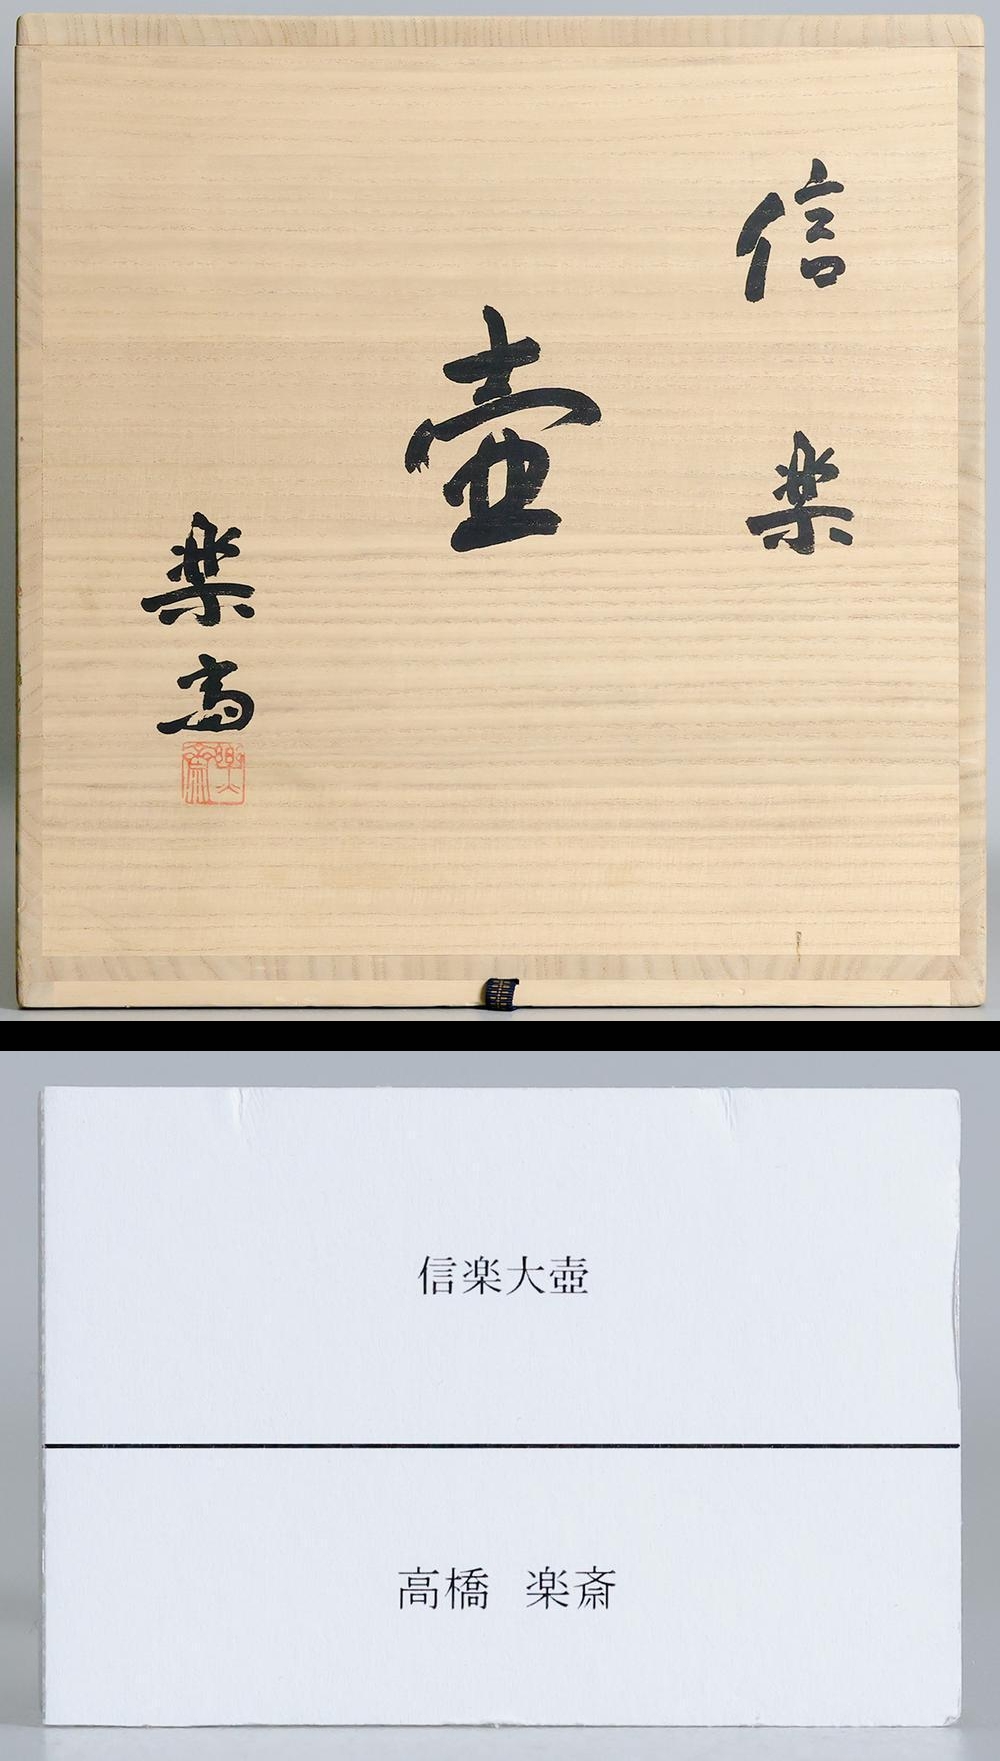 信楽
壺
楽斎
樂齋
信楽大壺
高橋 楽斎